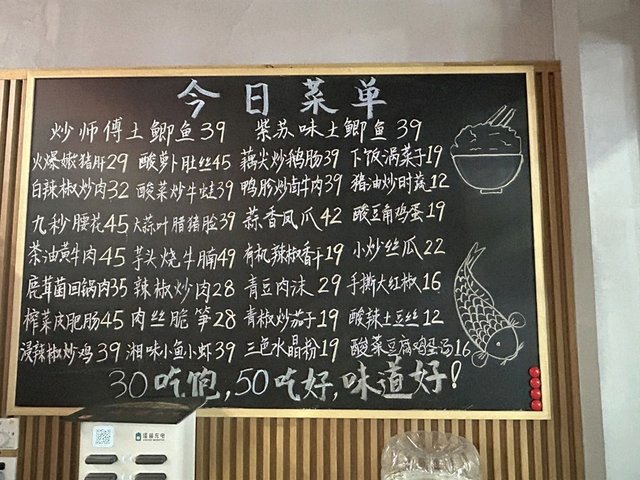 今日菜单
炒师傅土鲫鱼39 紫苏味土鲫鱼39
火爆嫩猪肝29 酸萝卜肚丝45 藕尖炒鹅肠39 下饭涡菜子19
白辣椒炒肉32 酸菜炒牛肚39 鸭胗炒卤牛肉39 猪油炒时蔬12
九秒腰花45 大蒜叶腊猪脸39 蒜香凤爪42 酸豆角鸡蛋19
茶油黄牛肉45 芋头烧牛腩49 有机辣椒香干19 小炒丝瓜22
鹿茸菌回锅肉35 辣椒炒肉28 青豆肉沫29 手撕大红椒16
榨菜皮肥肠45 肉丝脆笋28 青椒炒茄子19 酸辣土豆丝12
浸辣椒炒鸡39 湘味小鱼小虾39 三色水晶粉19 酸菜豆腐鸡蛋汤16
30吃饱,50吃好,味道好!